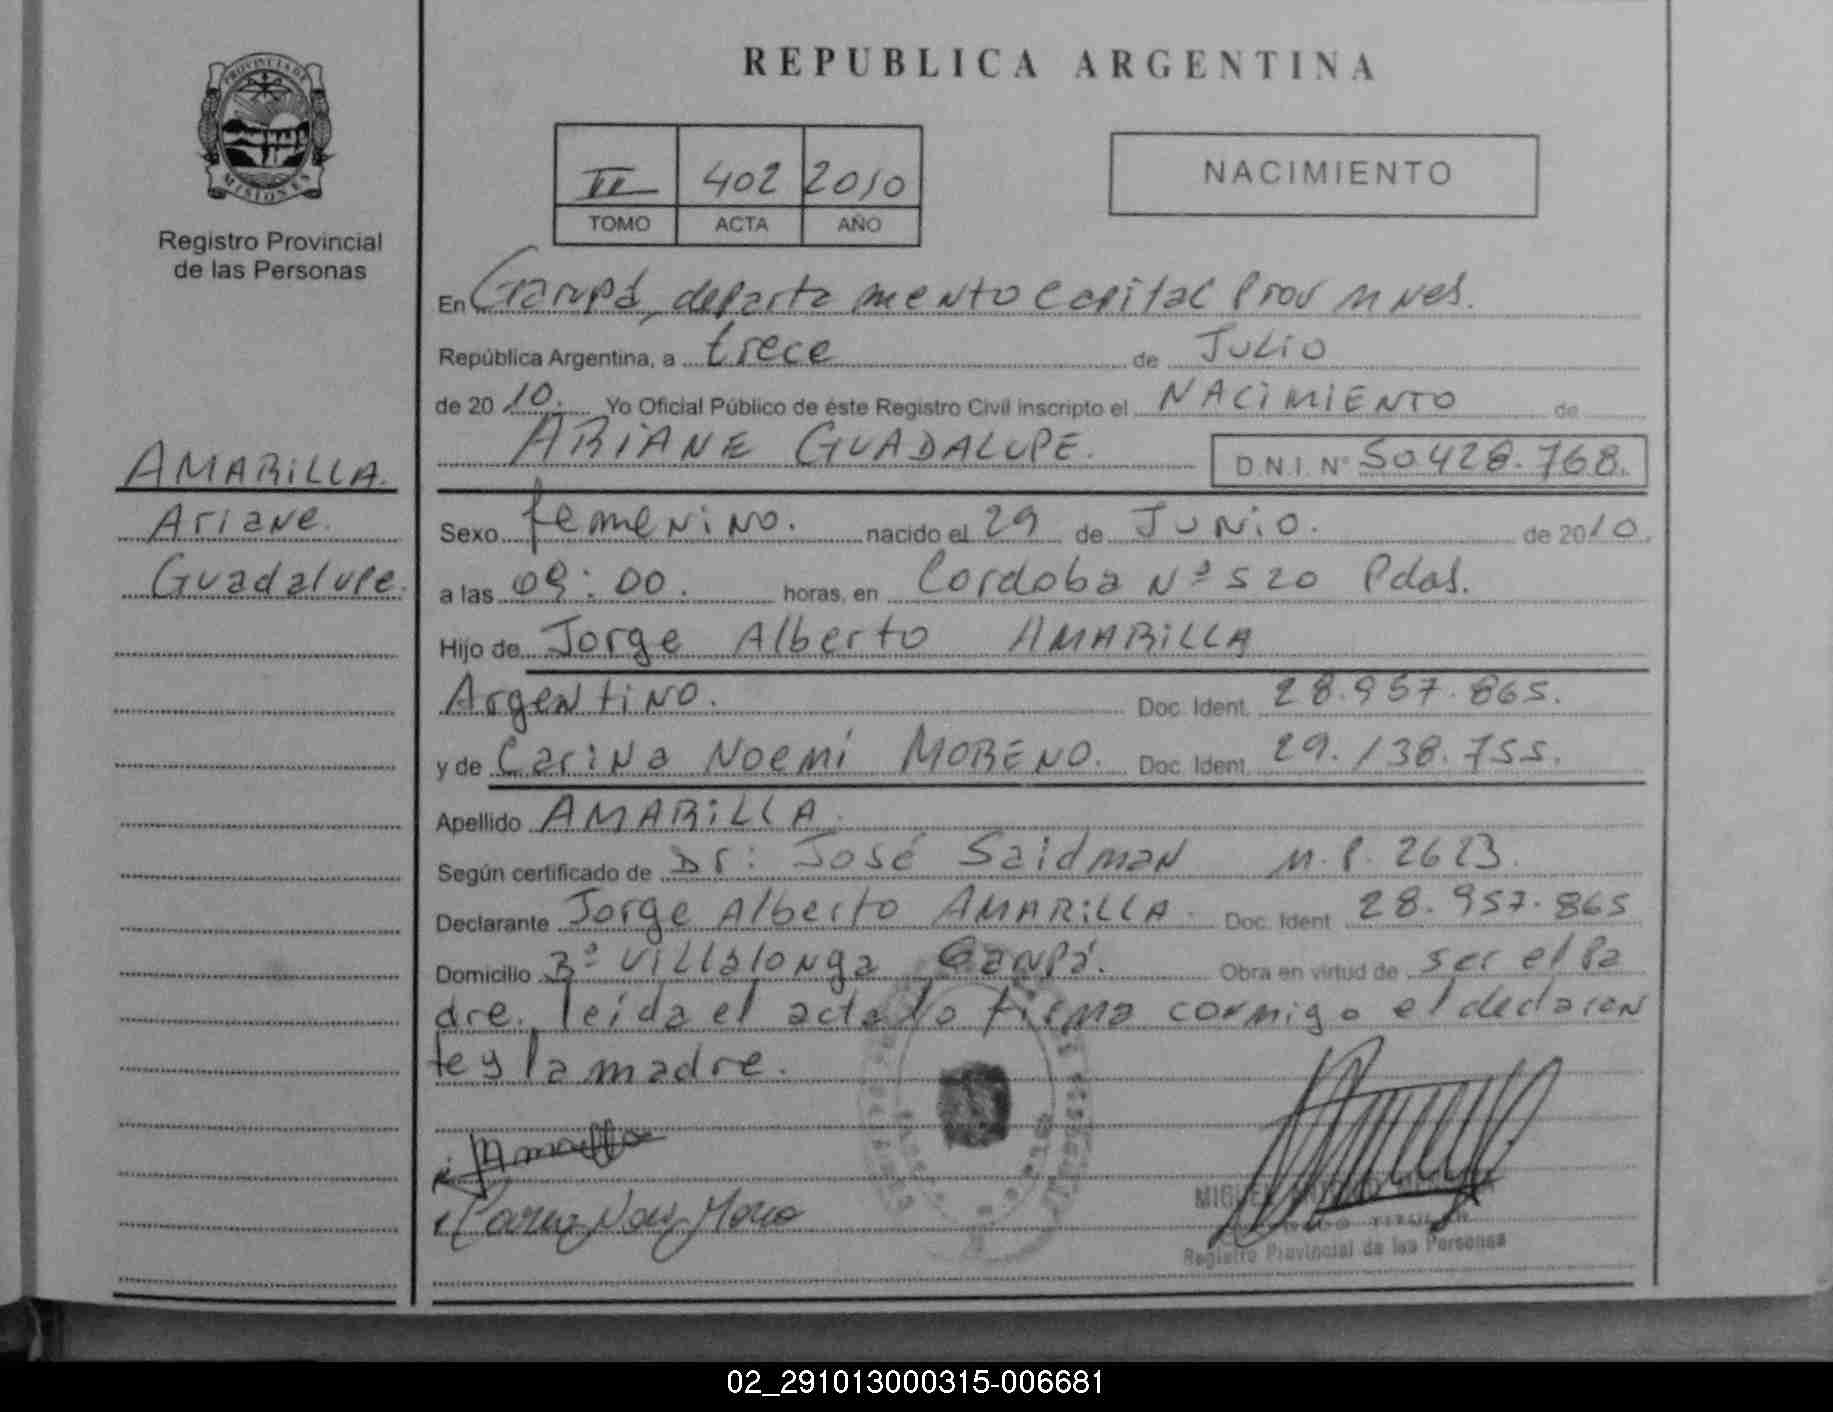 REPUBLICA ARGENTINA
PROVINCIA DE
MISIONES
Registro Provincial
de las Personas
II 402 2010
TOMO ACTA AÑO
NACIMIENTO
En Garupá, departamento Capital Prov Mnes.
República Argentina, a trece de Julio
de 2010. Yo Oficial Público de éste Registro Civil inscripto el NACIMIENTO de
ARIANE GUADALUPE. D.N.I. Nº 50428.768.
AMARILLA.
Ariane.
Guadalupe.
Sexo femenino. nacido el 29 de JUNIO. de 2010.
a las 09:00. horas, en Cordoba Nº 520 Pdas.
Hijo de Jorge Alberto AMARILLA
Argentino. Doc. Ident. 28.957.865.
y de Carina Noemí MORENO. Doc. Ident. 29.138.755.
Apellido AMARILLA.
Según certificado de Dr: José Saidman M.P. 2623.
Declarante Jorge Alberto AMARILLA. Doc. Ident. 28.957.865
Domicilio Bº Villalonga Garupá. Obra en virtud de ser el pa
dre. leída el acta la firma conmigo el declaran
te y la madre.
MIGUEL
TITULAR
Registro Provincial de las Personas
02_291013000315-006681